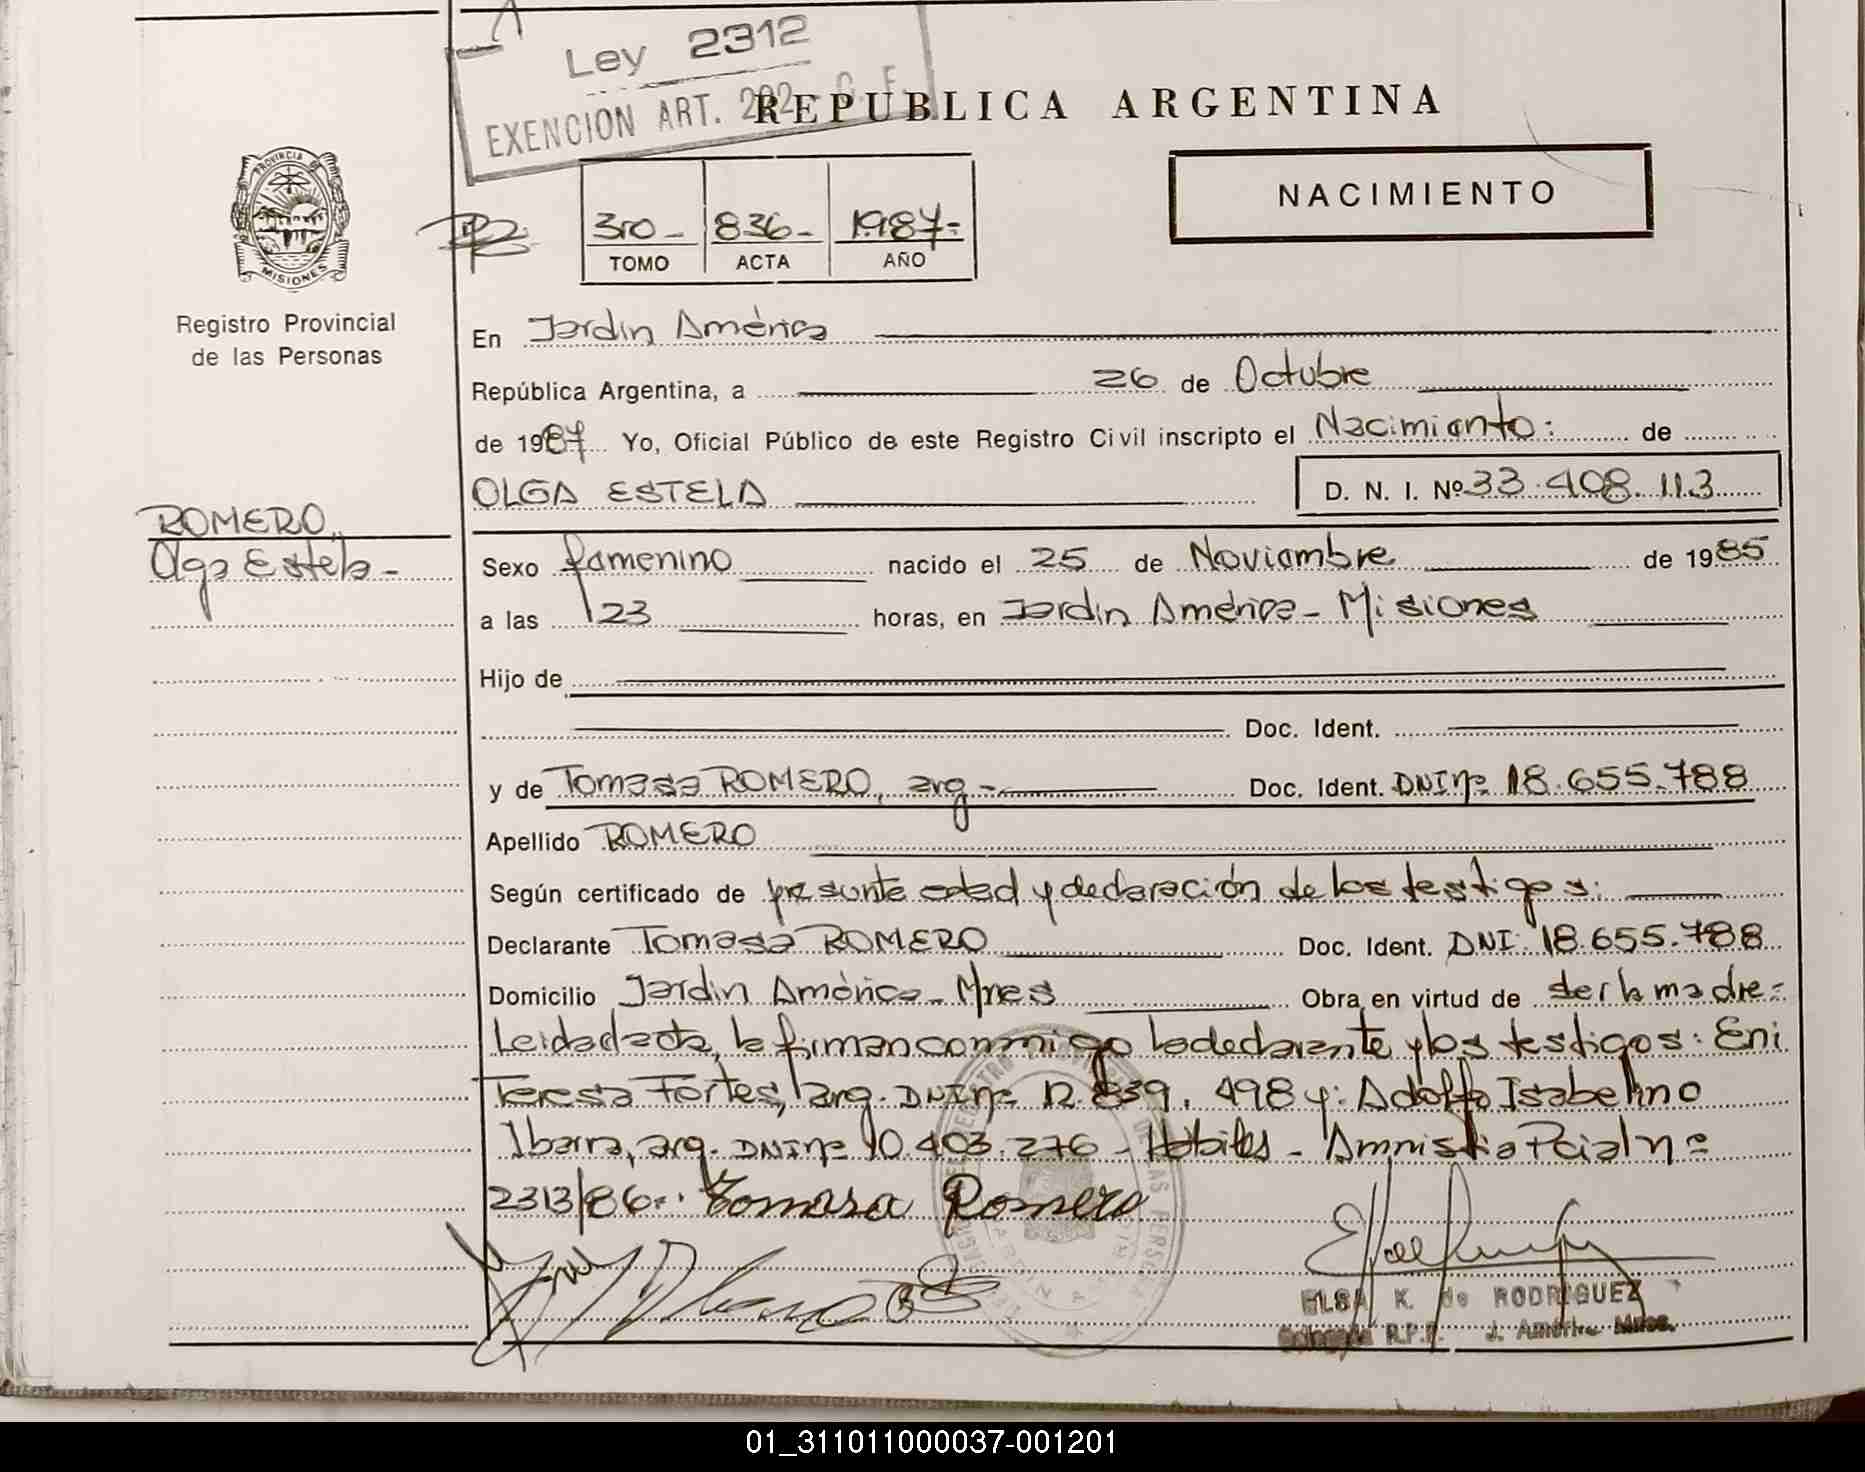 Ley 2312
EXENCION ART. 292 - C. F.
REPUBLICA ARGENTINA
NACIMIENTO
PROVINCIA DE
MISIONES
3ro - 836 - 1987 -
TOMO ACTA AÑO
Registro Provincial
de las Personas
En Jardin América
República Argentina, a 26 de Octubre
de 1987 Yo, Oficial Público de este Registro Civil inscripto el Nacimiento: de
OLGA ESTELA D. N. I. Nº 33.408.113
ROMERO
Olga Estela -
Sexo femenino nacido el 25 de Noviembre de 1985
a las 23 horas, en Jardin América - Misiones
Hijo de
Doc. Ident.
y de Tomasa ROMERO, arg - Doc. Ident. DNI nº 18.655.788
Apellido ROMERO
Según certificado de presunta edad y declaración de los testigos:
Declarante Tomasa ROMERO Doc. Ident. DNI: 18.655.788
Domicilio Jardin América - Mnes Obra en virtud de ser la madre =
Leida el acta, la firman conmigo la declarante y los testigos: Eni
Teresa Fortes, arg. DNI nº 12.839.498 y: Adolfo Isabelino
Ibarra, arg. DNI nº 10.403.276 - Hábiles - Amnistia Pcial nº
2313/86 =. Tomasa Romero
ELSA K. de RODRIGUEZ
Delegada R.P.P. J. América Mnes.
01_311011000037-001201